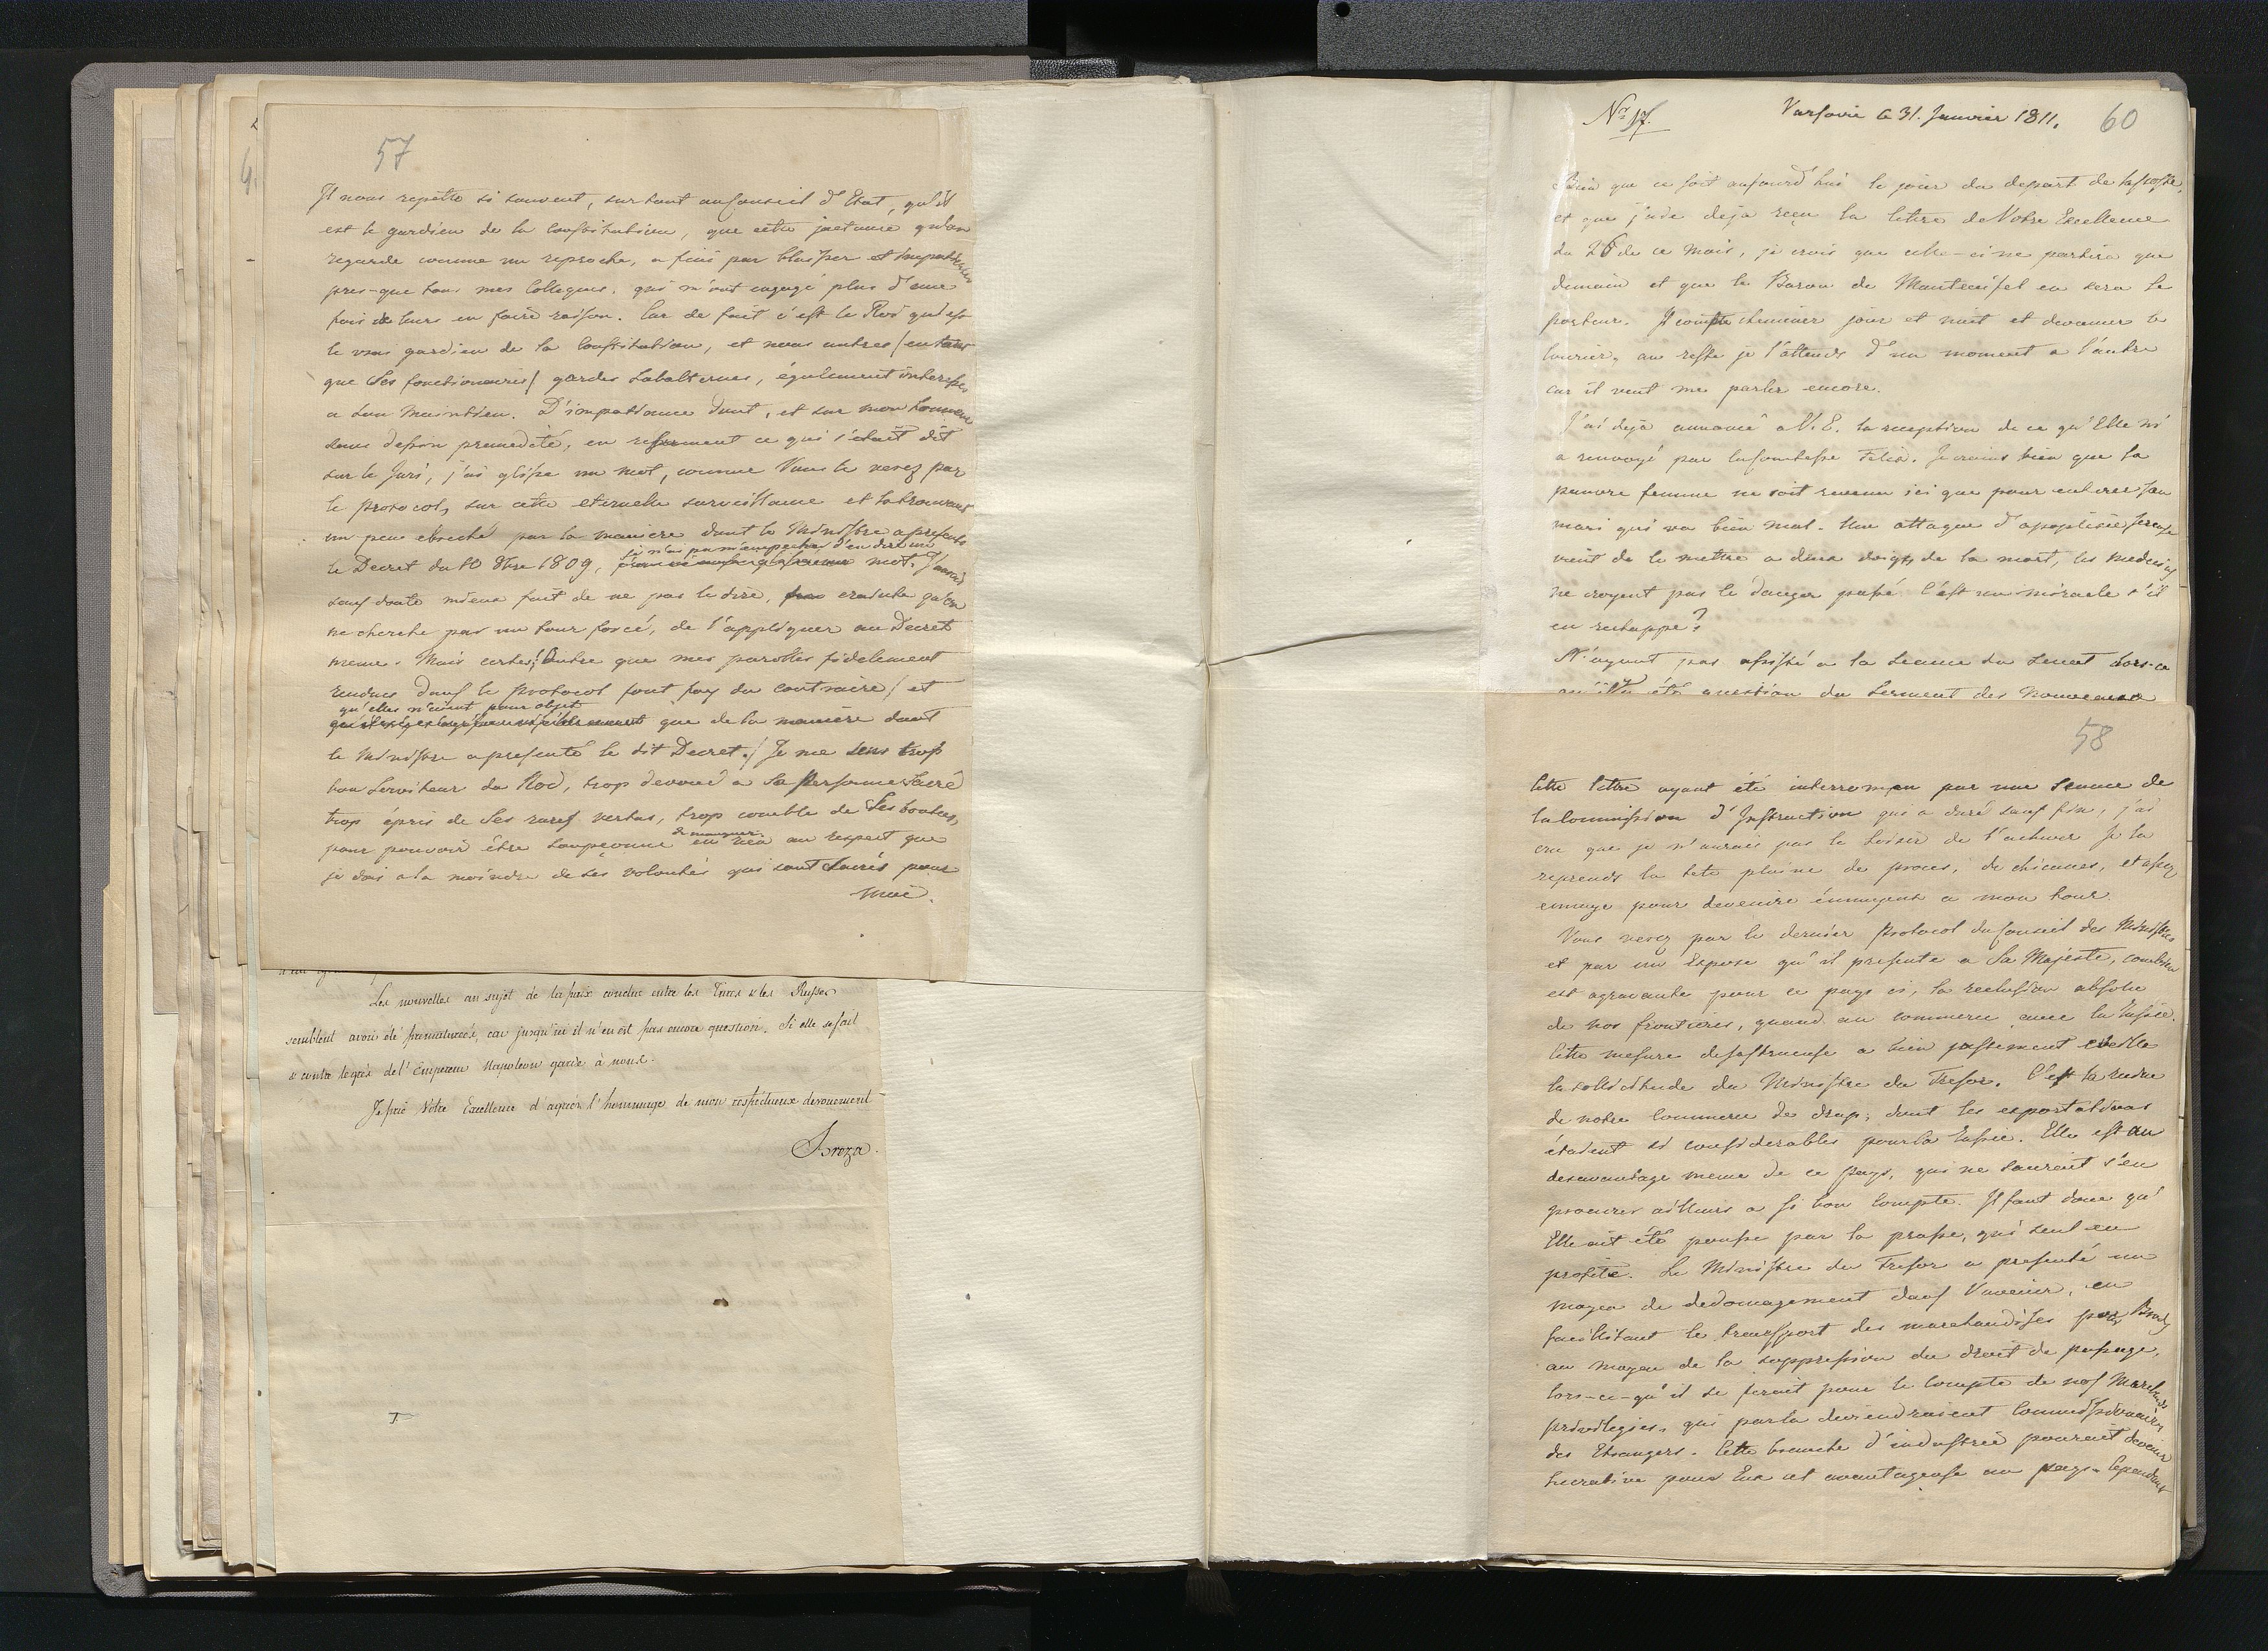 57
Il nous repette si souvent, surtout au Conseil d'Etat, qu'il
est le gardien de la Constitution, que cette jactance qu'on
regarde comme un reproche, a fini par blesser et impatienter
pres-que tous mes Collegues, qui m'ont engagé plus d'une
fois de leurs en faire raison. Car de fait c'est le Roi qui est
le vrai gardien de la Constitution, et nous autres /en tant
que Ses fonctionaires/ gardes subalternes, également interessés
a son maintien. D'impatiance dont, et sur mon honneur
sans dessin premedité, en resumant ce qui s'etait dit
sur le Juri, j'ai glissé un mot, comme Vous le verez par
le protocol, sur cette eternelle surveillance et la trouvant
un peu ébreché par la maniere dont le Ministre a presenté
le Decret du 10 8bre 1809, je n'ai pu m'empecher d'en dire un mot. J'aurais
sans doute mieux fait de ne pas le dire, crainte qu'on
ne cherche par un tour forcé, de l'appliquer au Decret
meme. Mais certes! Outre que mes parolles fidelement
rendues dans le Protocol font foy du contraire / et
qu'elles n'eurent pour objet
que de la maniere dont
le Ministre a presenté le dit Decret./ Je me sens trop
bon Serviteur du Roi, trop devoué a Sa Personne Sacré
trop épris de Ses rares vertus, trop comblé de Ses bontes,
pour pouvoir être soupçonné de manquer en rien au respect que
je dois a la moindre de ses volontés qui sont Sacrés pour
moi.
Les nouvelles au sujet de la paix conclue entre les Turcs & les Russes
semblent avoir été prematurées, car jusqu'ici il n'en est pas encore question. Si elle se fait
& contre le gré de l'Empereur Napoleon gare à nous.
Je prie Votre Excellence d'agréer l'hommage de mon respectueux devouement
Breza
Nr 17.
Varsovie le 31. Janvier 1811.
60
Bien que ce soit aujourd'hui le jour du depart de la poste,
et que j'aie deja reçu la lettre de Votre Excellence
du 26 de ce mois, je crois que celle-ci ne partira que
demain et que le Baron de Manteuffel en sera le
porteur. Il compte cheminer jour et nuit et devancer le
Courier, au reste je l'attends d'un moment a l'autre
car il veut me parler encore.
J'ai deja annoncé a V. E. la reception de ce qu'Elle m'
a renvoyé par la Comtesse Felix. Je crains bien que la
pauvre femme ne soit revenu ici que pour enterer son
mari qui va bien mal. Une attaque d'apoplexie sereuse
vient de le mettre a deux doigts de la mort, les medecins
ne croyent pas le danger passé. C'est un miracle s'il
en rechappe?
N'ayant pas assisté a la Seance du Senat lors-ce
qu'il y a été question du Serment des Nouveaux
58
Cette lettre ayant été interrompu par une Seance de
la Commission d'Instruction qui a duré sans fin, j'ai
cru que je n'aurais pas le loisir de l'achever. Je la
reprends la tete pleine de proces, de chicanes, et assez
ennuyé pour devenire ennuyant a mon tour.
Vous verez par le dernier Protocol du Conseil des Ministres
et par un Exposé qu'il presente a Sa Majesté, combien
est agravante pour ce pays ci, la reclusion absolue
de nos frontieres, quand au commerce avec la Russie.
Cette mesure desastreuse a bien justement éveillé
la sollicitude du Ministre du Tresor. C'est la ruine
de notre Commerce de drap, dont les exportations
étaient si considerables pour la Russie. Elle est au
desavantage meme de ce pays, qui ne saurait s'en
procurer ailleurs a si bon Compte. Il faut donc qu'
Elle ait été poussé par la prusse, qui seul en
profite. Le Ministre du Tresor a presenté un
moyen de dedomagement dans l'avenir, en
facilitant le transport des marchandises par Brody
au moyen de la suppression du droit de passage,
lors-ce-qu'il se ferait pour le Compte de nos Marchands
privilegies, qui par la deviendraient Commissionaires
des Etrangers. Cette branche d'industrie pourait devenir
lucrative pour Eux et avantageuse au pays. Cependant